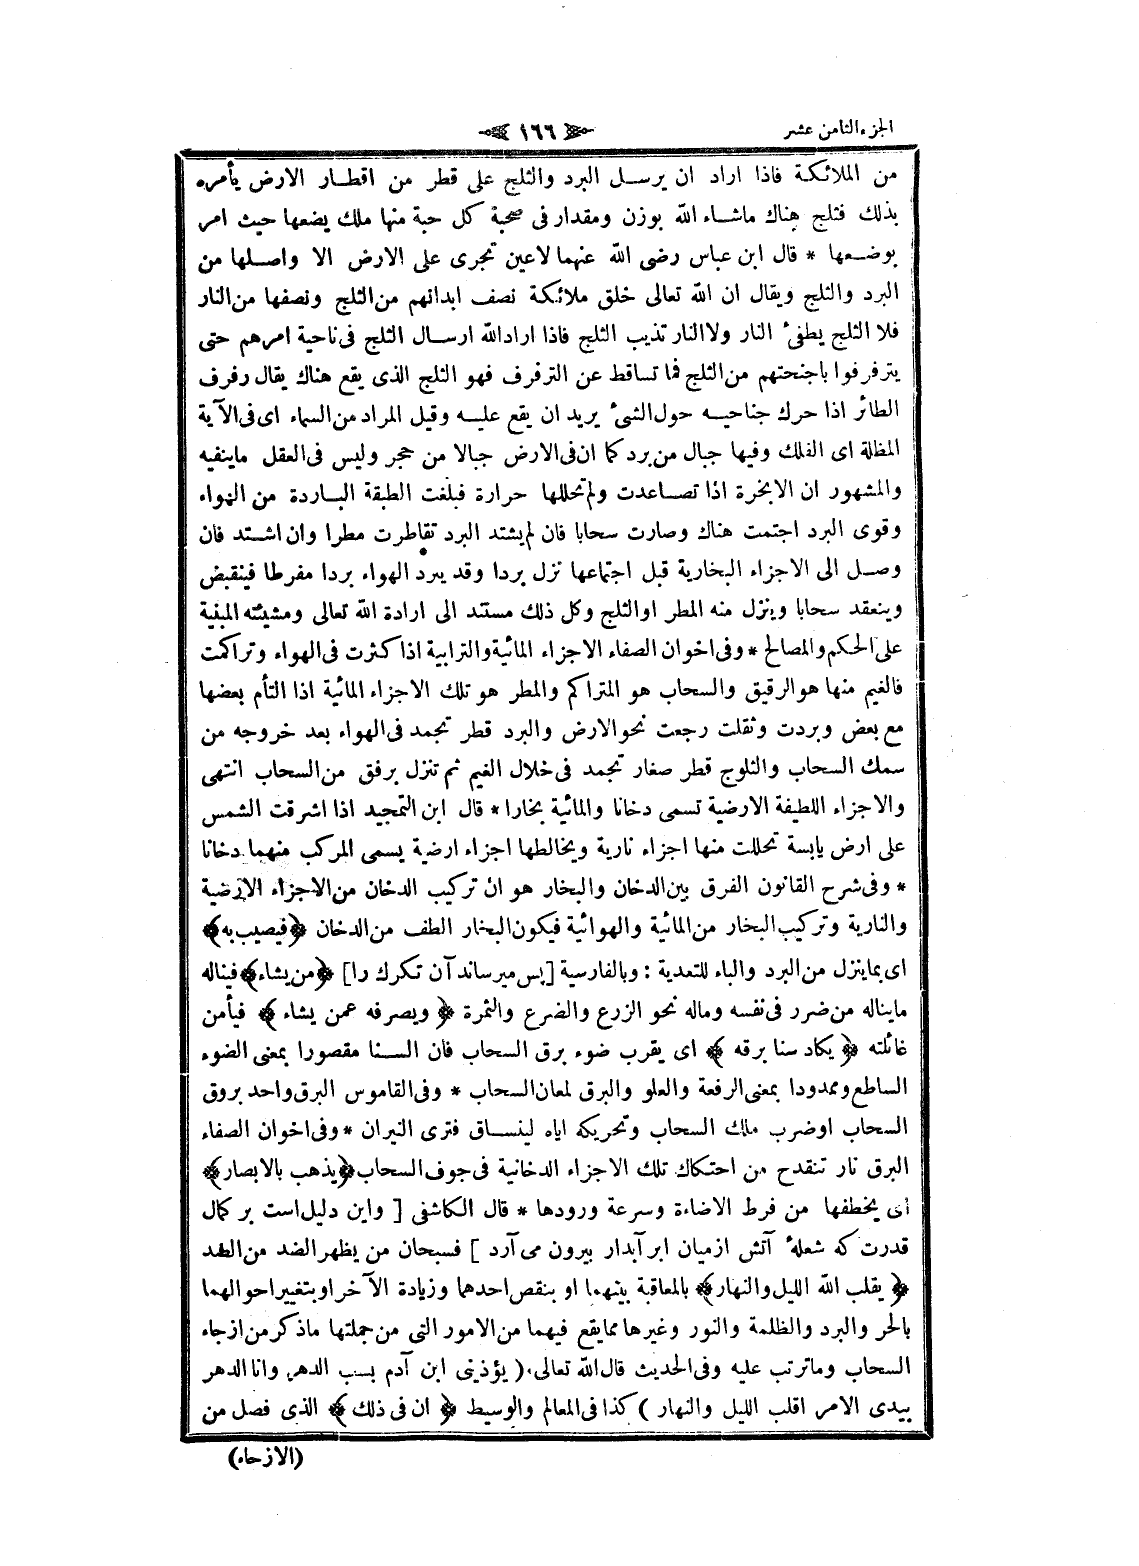 الجزء الثامن عشر
١٦٦
من الملائكة فاذا اراد ان يرسل البرد والثلج على قطر من اقطار الارض يأمره
بذلك فثلج هناك ماشاء الله بوزن ومقدار فى صحبة كل حبة منها ملك يضعها حيث امر
بوضعها * قال ابن عباس رضى الله عنهما لاعين تجرى على الارض الا واصلها من
البرد والثلج ويقال ان الله تعالى خلق ملائكة نصف ابدانهم من الثلج ونصفها من النار
فلا الثلج يطفئ النار ولا النار تذيب الثلج فاذا اراد الله ارسال الثلج فى ناحية امرهم حتى
يترفرفوا باجنحتهم من الثلج فما تساقط عن الترفرف فهو الثلج الذى يقع هناك يقال رفرف
الطائر اذا حرك جناحيه حول الشئ يريد ان يقع عليه وقيل المراد من السماء اى فى الآية
المظلة اى الفلك وفيها جبال من برد كما ان فى الارض جبالا من حجر وليس فى العقل ماينفيه
والمشهور ان الابخرة اذا تصاعدت ولم تحللها حرارة فبلغت الطبقة الباردة من الهواء
وقوى البرد اجتمت هناك وصارت سحابا فان لم يشتد البرد تقاطرت مطرا وان اشتد فان
وصل الى الاجزاء البخارية قبل اجتماعها نزل بردا وقد يبرد الهواء بردا مفرطا فينقبض
وينعقد سحابا وينزل منه المطر او الثلج وكل ذلك مستند الى ارادة الله تعالى ومشيئته المبنية
على الحكم والمصالح * وفى اخوان الصفاء الاجزاء المائية والترابية اذا كثرت فى الهواء وتراكمت
فالغيم منها هو الرقيق والسحاب هو المتراكم والمطر هو تلك الاجزاء المائية اذا التأم بعضها
مع بعض وبردت وثقلت رجعت نحو الارض والبرد قطر تجمد فى الهواء بعد خروجه من
سمك السحاب والثلوج قطر صغار تجمد فى خلال الغيم ثم تنزل برفق من السحاب انتهى
والاجزاء اللطيفة الارضية تسمى دخانا والمائية بخارا * قال ابن التمجيد اذا اشرقت الشمس
على ارض يابسة تحللت منها اجزاء نارية ويخالطها اجزاء ارضية يسمى المركب منهما دخانا
* وفى شرح القانون الفرق بين الدخان والبخار هو ان تركيب الدخان من الاجزاء الارضية
والنارية وتركيب البخار من المائية والهوائية فيكون البخار الطف من الدخان ﴿فيصيب به﴾
اى بماينزل من البرد والباء للتعدية : وبالفارسية [پس ميرساند آن تكرك را] ﴿من يشاء﴾ فيناله
مايناله من ضرر فى نفسه وماله نحو الزرع والضرع والثمرة ﴿ ويصرفه عمن يشاء ﴾ فيأمن
غائلته ﴿ يكاد سنا برقه ﴾ اى يقرب ضوء برق السحاب فان السنا مقصورا بمعنى الضوء
الساطع وممدودا بمعنى الرفعة والعلو والبرق لمعان السحاب * وفى القاموس البرق واحد بروق
السحاب اوضرب ملك السحاب وتحريكه اياه لينساق فترى النيران * وفى اخوان الصفاء
البرق نار تنقدح من احتكاك تلك الاجزاء الدخانية فى جوف السحاب ﴿يذهب بالابصار﴾
اى يخطفها من فرط الاضاءة وسرعة ورودها * قال الكاشفى [ واين دليل است بر كمال
قدرت كه شعلهٔ آتش ازميان ابر آبدار بيرون مى آرد ] فسبحان من يظهر الضد من الضد
﴿ يقلب الله الليل والنهار﴾ بالمعاقبة بينهما او بنقص احدهما وزيادة الآخر او بتغيير احوالهما
بالحر والبرد والظلمة والنور وغيرها ممايقع فيهما من الامور التى من جملتها ماذكر من ازجاء
السحاب وماترتب عليه وفى الحديث قال الله تعالى ( يؤذينى ابن آدم بسب الدهر وانا الدهر
بيدى الامر اقلب الليل والنهار ) كذا فى المعالم والوسيط ﴿ ان فى ذلك ﴾ الذى فصل من
(الازجاء)